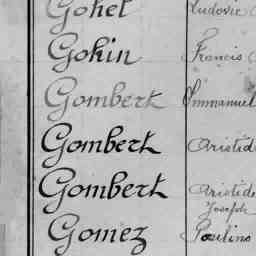 Gohel Ludovic
Gohin Francis
Gombert Emmanuel
Gombert Aristide
Gombert Aristide
Joseph
Gomez Paulino